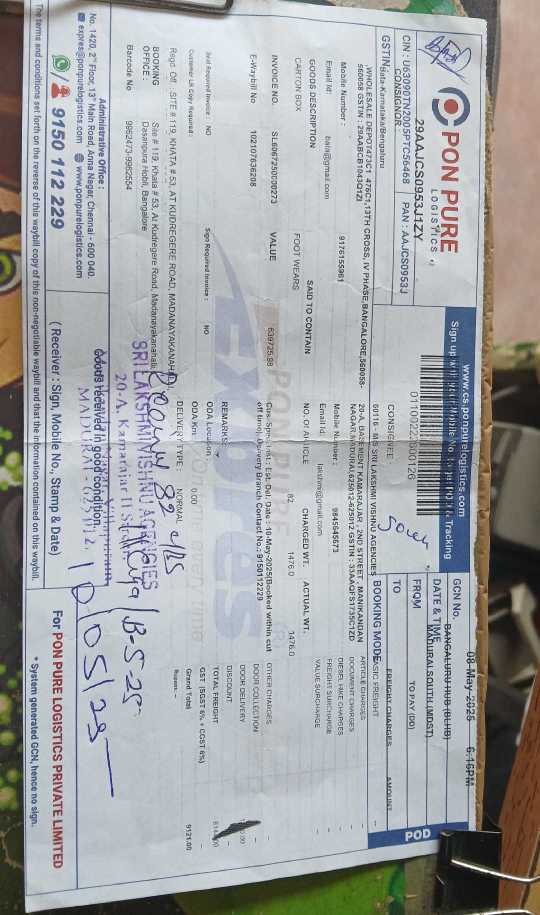 PON PURE
LOGISTICS
CIN : U63090TN2005PTC56468
CONSIGNOR
29AAJCS0953J1ZY
PAN : AAJCS0953J
GSTIN
Bata-Karnataka/Bengaluru
,WHOLESALE DEPOT473C1 476C1,13TH CROSS, IV PHASE,BANGALORE,560058-
560058 GSTIN : 29AABCB1043Q1ZI
Mobile Number :
9176155961
Email Id:
GOODS DESCRIPTION
SAID TO CONTAIN
CARTON BOX
FOOT WEARS
INVOICE NO.
SL6067250000273
VALUE
639725.98
E-Waybill No
102107636208
Seal Required Invoice : NO
Sign Required Invoice : NO
Customer LR Copy Required :
Regd. Off : SITE # 119, KHATA # 53, AT KUDREGERE ROAD, MADANAYAKANAHALLI,
BOOKING OFFICE :
Site # 119, Khata # 53, At Kudregere Road, Madanayakanahalli,
Dasanpura Hobli, Bangalore
Barcode No
9982473-9982554
www.cs.ponpurelogistics.com
Sign up with your Mobile No. Tracking
CONSIGNEE :
60116 - M/S SRI LAKSHMI VISHNU AGENCIES
20-A, BASEMENT KAMARAJAR, 2ND STREET, MANIKANDAN
NAGAR,MADURAI,625012-625012 GSTIN : 33AAQFS1735C1ZD
Mobile Number :
9845645673
Email Id:
NO. OF ARTICLE
CHARGED WT.
ACTUAL WT.
82
1476.0
1476.0
Cus. Spl. Inst.: Est. Del. Date : 10-May-2025(Booked within cut
off time) Delivery Branch Contact No.: 9150112229
REMARKS
ODA Location :
ODA Km : 0.00
DELIVERY TYPE : NORMAL
GCN No.
08-May-2025 6:16PM
DATE & TIME
BANGALURU HUB (BLHB)
FROM
MADURAI SOUTH (MDST)
TO
TO PAY (DD)
BOOKING MODE
FREIGHT CHARGES
AMOUNT
BASIC FREIGHT
ARTICLE CHARGES
DOCUMENT CHARGES
DIESEL HIKE CHARGES
FREIGHT SURCHARGE
VALUE SURCHARGE
OTHER CHARGES
DOOR COLLECTION
DOOR DELIVERY
DISCOUNT
TOTAL FREIGHT
GST (SGST 6% + CGST 6%)
Grand Total
9121.00
POD
SRI LAKSHMI VISHNU AGENCIES
20-A, Kamarajar II Street
13-5-25
Administrative Office :
No. 1420, 2nd Floor, 13th Main Road, Anna Nagar, Chennai - 600 040.
expres@ponpurelogistics.com
www.ponpurelogistics.com
9150 112 229
Goods received in good condition.
( Receiver : Sign, Mobile No., Stamp & Date)
For PON PURE LOGISTICS PRIVATE LIMITED
* System generated GCN, hence no sign.
The terms and conditions set forth on the reverse of this waybill copy of this non-negotiable waybill and that the information contained on this waybill.